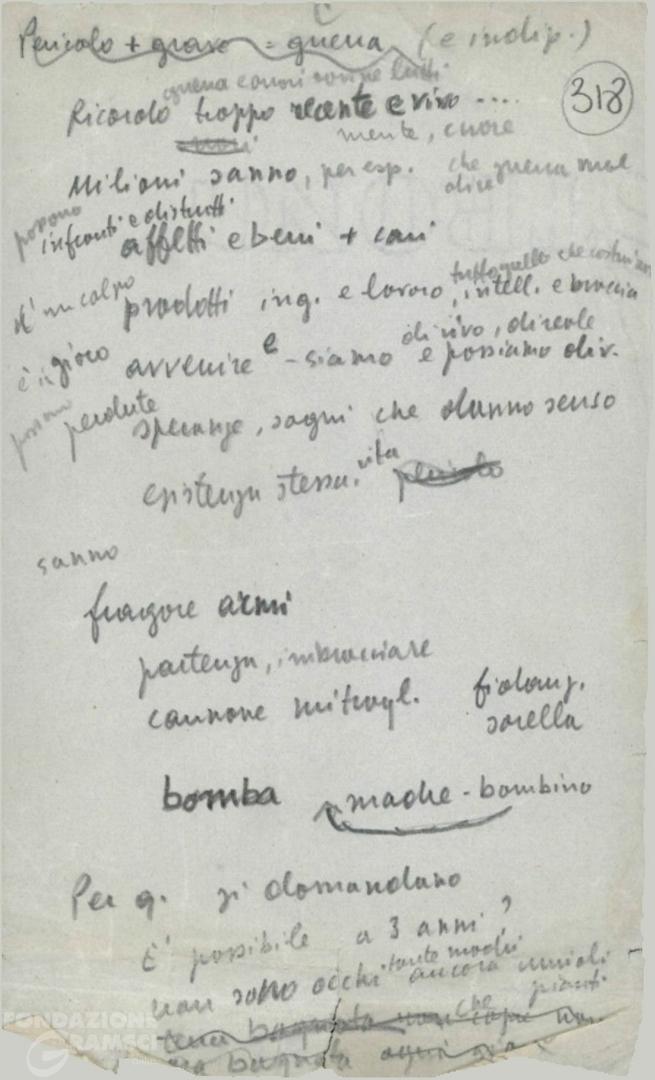 Pericolo + grave = guerra (e indip.)
318
guerra e orrori rompe tutti
Ricordo troppo recente e vivo ....
mente, cuore
Milioni sanno, per esp. che guerra vuol dire
possono infranti e distrutti
affetti e beni + cari
tutto quello che costruirono
prodotti ing. e lavoro, intell. e braccia
è in gioco avvenire e - siamo e possiamo div.
di vivo, di reale
possono perdute
speranze, sogni che danno senso
esistenza stessa. vita
sanno
fragore armi
partenza, imbracciare
cannone mitragl. fidanz.
sorella
bomba madre - bambino
Per q. si domandano
E' possibile a 3 anni?
non sono occhi tante madri ancora umidi
che pianti
terra bagnata non
bagnata ogni
FONDAZIONE
GRAMSCI